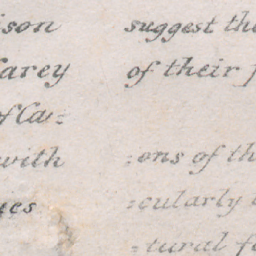 ison
arey
of Ca=
with
ues
suggest the
of their
=ons of th
=cularly
=tural fo